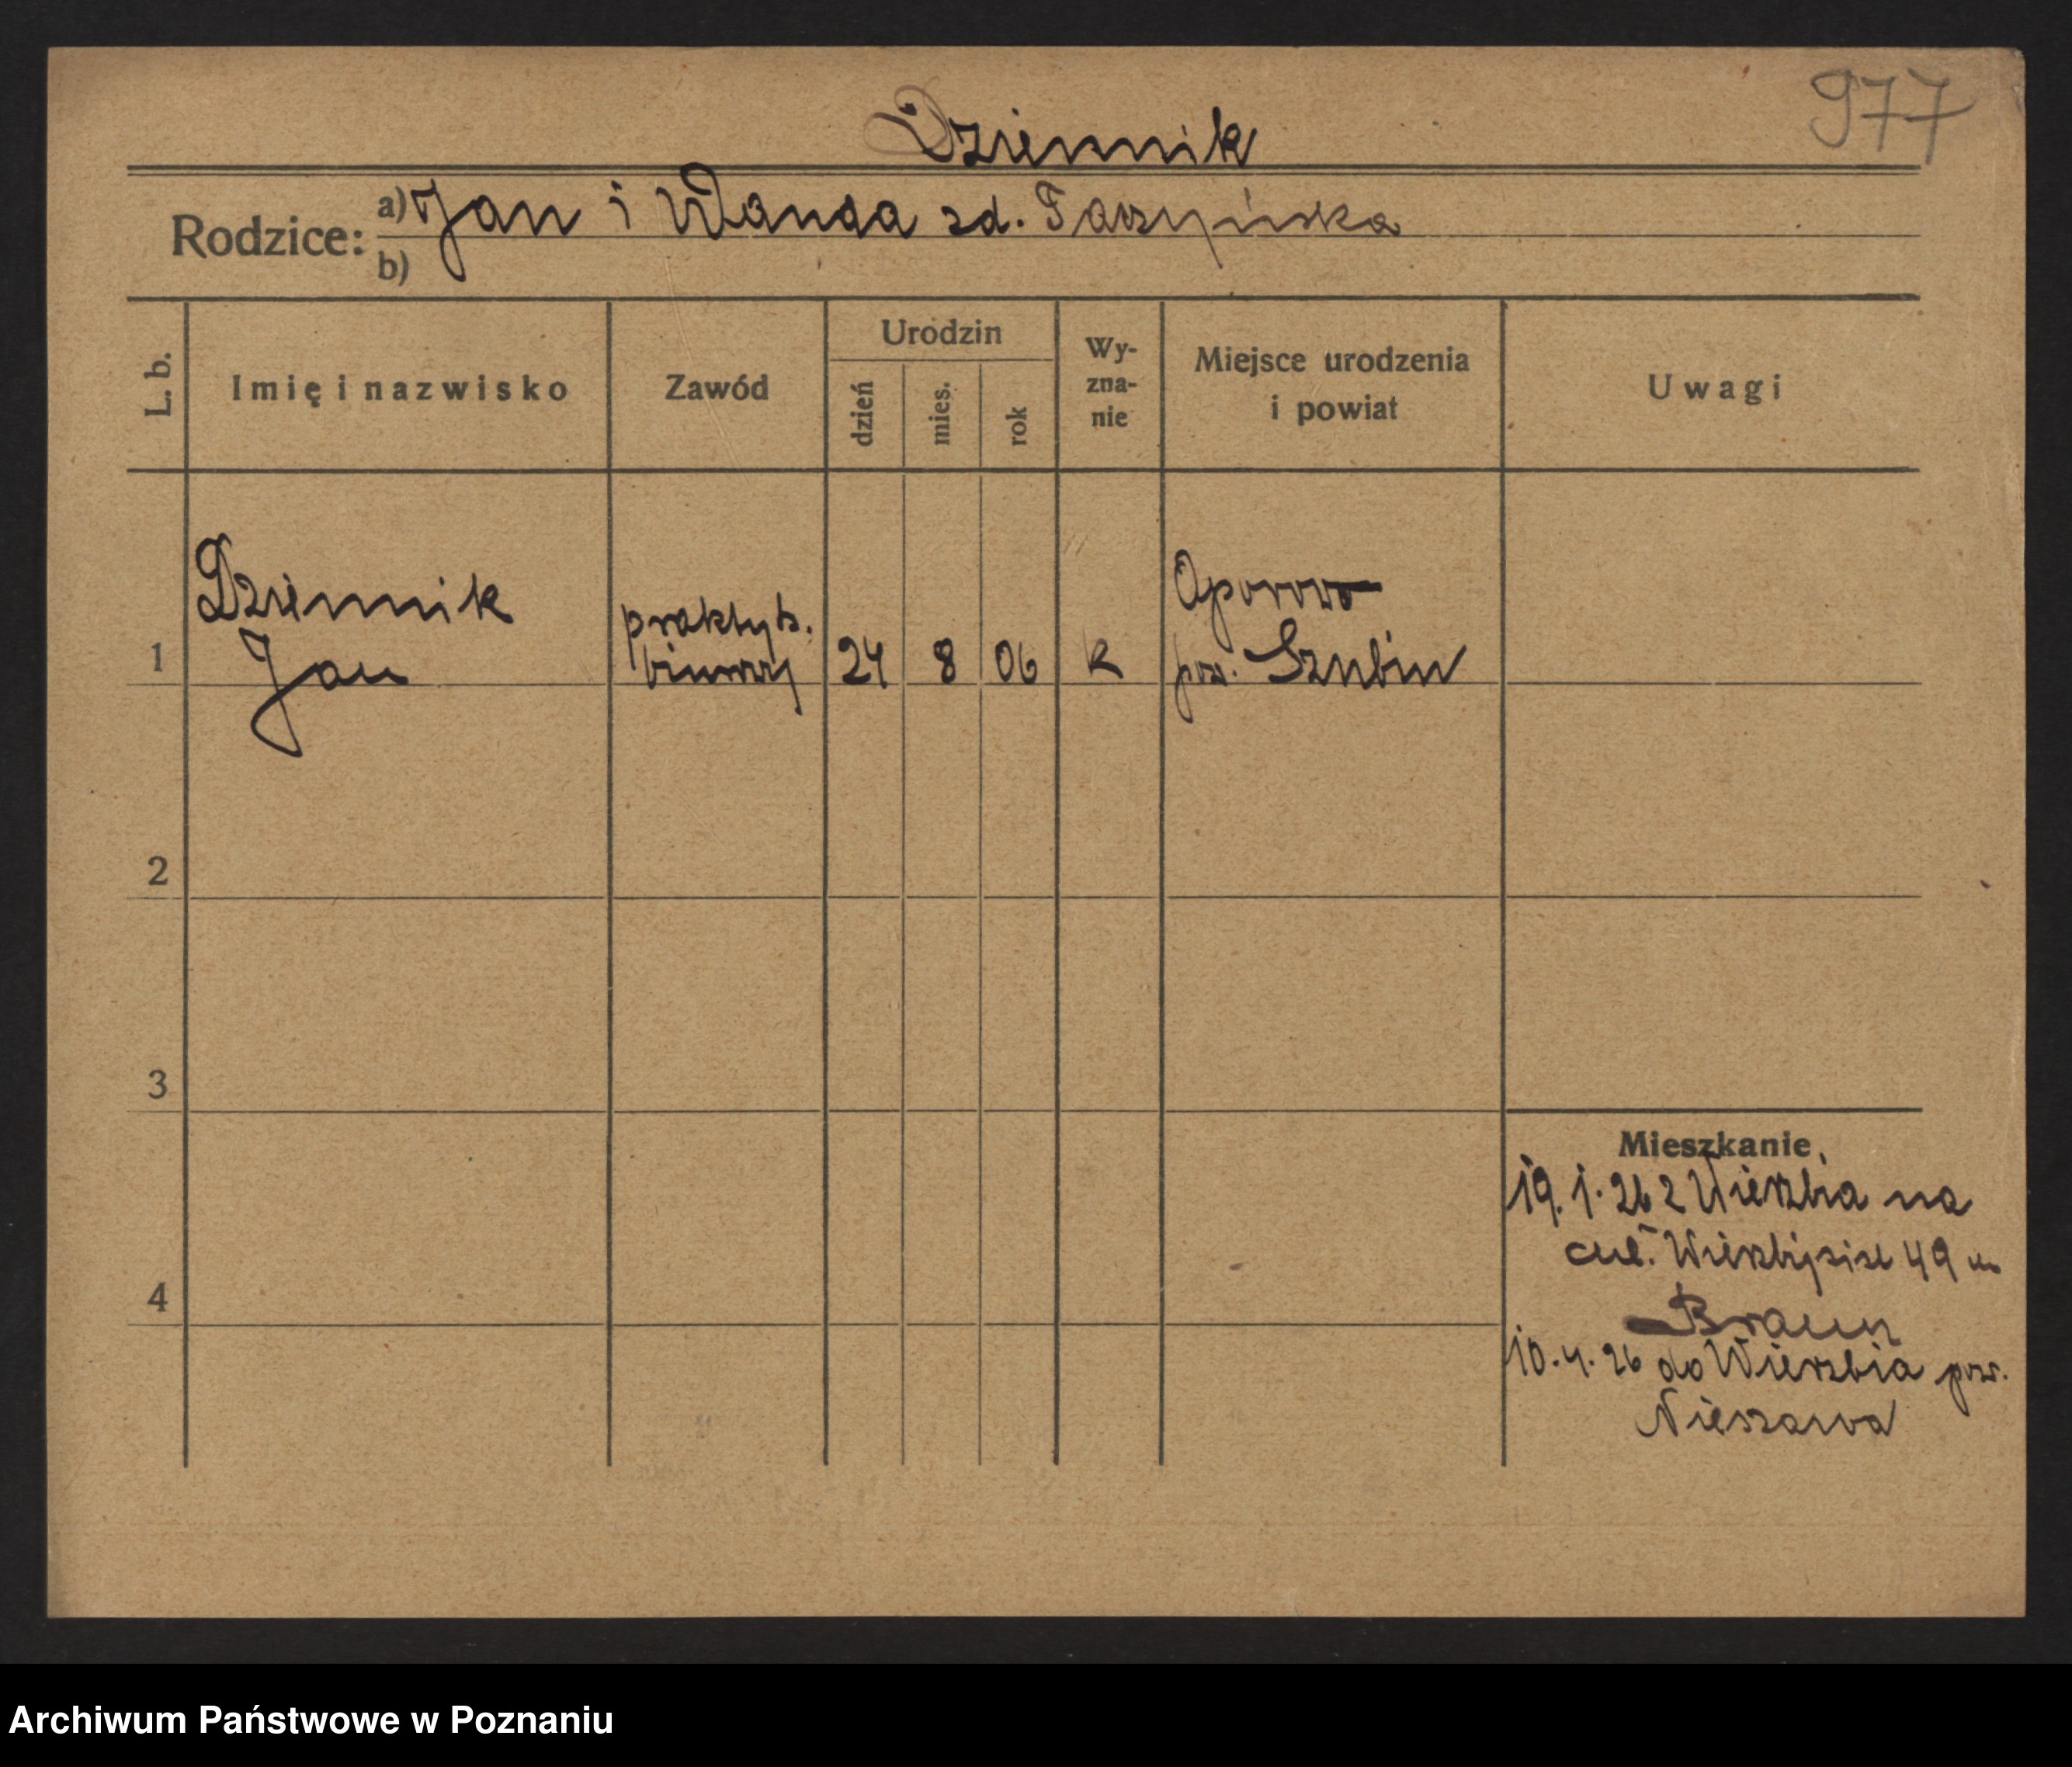 977
Dziennik
Rodzice: a) Jan i Wanda zd.
b)
L. b.
Imię i nazwisko
Zawód
Urodzin
dzień
mies.
rok
Wy-
zna-
nie
Miejsce urodzenia
i powiat
Uwagi
1
Dziennik
Jan
praktyk.
biurowy
24
8
06
k
Oporowo
pow. Szubin
2
3
4
Mieszkanie
19. 1. 26 z Wierzbia na
49
Braun
10. 4. 26 do Wierzbia pow.
Nieszawa
Archiwum Państwowe w Poznaniu